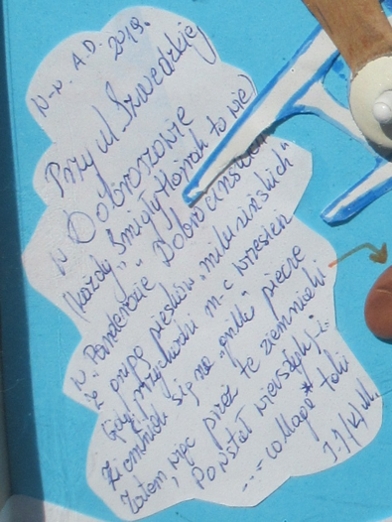 W-w. A.D. 2019.
Przy ul. Szwedzkiej
w Dobroszowie
(każdy Śmigły Hojrak to wie)
w "Panderozie" Dobrocińskich
z grupą piesków "miluzińskich"
Gdy przychodzi m-c wrzesień
Ziemniak się na "grilu" piecze
Zatem, więc pieź te ziemniaki
Powstał wierszyk i
--- collage* taki